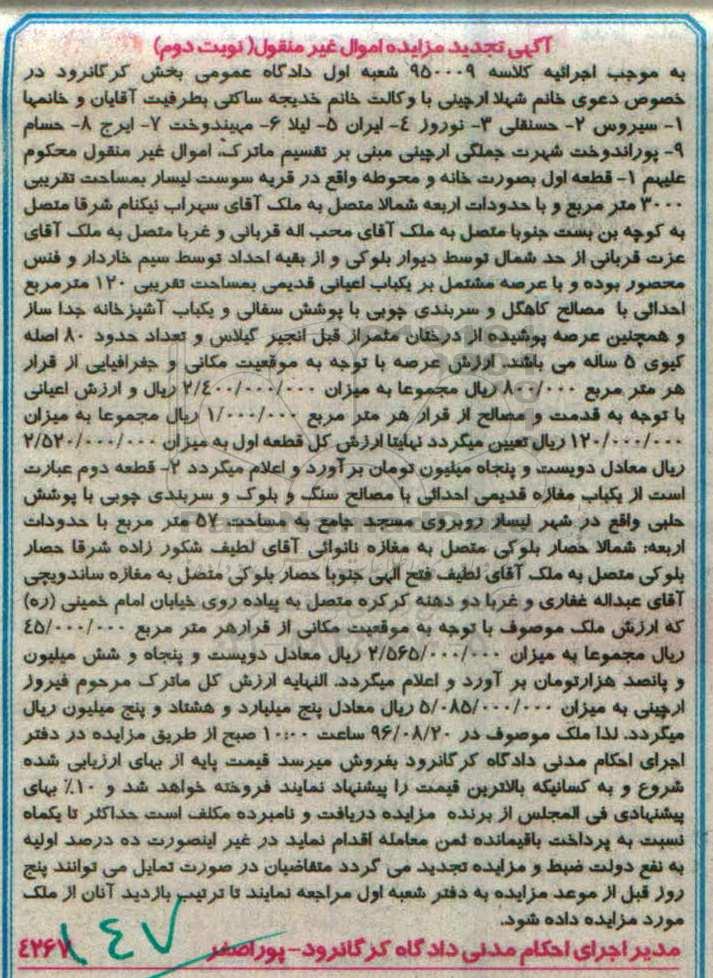 آگهی تجدید مزایده اموال غیر منقول( نوبت دوم)
به موجب اجرائیه کلاسه ۹۵۰۰۰۹ شعبه اول دادگاه عمومی بخش کرگانرود در
خصوص دعوی خانم شهلا ارچینی با وکالت خانم خدیجه ساکتی بطرفیت آقایان و خانمها
۱- سیروس ۲- حسنقلی ۳- نوروز ٤- ایران ۵- لیلا ۶- مهیندوخت ۷- ایرج ۸- حسام
۹- پوراندوخت شهرت جملگی ارچینی مبنی بر تقسیم ماترک، اموال غیر منقول محکوم
علیهم ۱- قطعه اول بصورت خانه و محوطه واقع در قریه سوست لیسار بمساحت تقریبی
۳۰۰۰ متر مربع و با حدودات اربعه شمالا متصل به ملک آقای سهراب نیکنام شرقا متصل
به کوچه بن بست جنوبا متصل به ملک آقای محب اله قربانی و غربا متصل به ملک آقای
عزت قربانی از حد شمال توسط دیوار بلوکی و از بقیه احداد توسط سیم خاردار و فنس
محصور بوده و با عرصه مشتمل بر یکباب اعیانی قدیمی بمساحت تقریبی ۱۲۰ مترمربع
احداثی با مصالح کاهگل و سربندی چوبی با پوشش سفالی و یکباب آشپزخانه جدا ساز
و همچنین عرصه پوشیده از درختان مثمراز قبل انجیر گیلاس و تعداد حدود ۸۰ اصله
کیوی ۵ ساله می باشد. ارزش عرصه با توجه به موقعیت مکانی و جغرافیایی از قرار
هر متر مربع ۸۰۰/۰۰۰ ریال مجموعا به میزان ۲/٤۰۰/۰۰۰/۰۰۰ ریال و ارزش اعیانی
با توجه به قدمت و مصالح از قرار هر متر مربع ۱/۰۰۰/۰۰۰ ریال مجموعا به میزان
۱۲۰/۰۰۰/۰۰۰ ریال تعیین میگردد نهایتا ارزش کل قطعه اول به میزان ۲/۵۲۰/۰۰۰/۰۰۰
ریال معادل دویست و پنجاه میلیون تومان برآورد و اعلام میگردد ۲- قطعه دوم عبارت
است از یکباب مغازه قدیمی احداثی با مصالح سنگ و بلوک و سربندی چوبی با پوشش
حلبی واقع در شهر لیسار روبروی مسجد جامع به مساحت ۵۷ متر مربع با حدودات
اربعه: شمالا حصار بلوکی متصل به مغازه نانوائی آقای لطیف شکور زاده شرقا حصار
بلوکی متصل به ملک آقای لطیف فتح الهی جنوبا حصار بلوکی متصل به مغازه ساندویچی
آقای عبداله غفاری و غربا دو دهنه کرکره متصل به پیاده روی خیابان امام خمینی (ره)
که ارزش ملک موصوف با توجه به موقعیت مکانی از قرارهر متر مربع ٤۵/۰۰۰/۰۰۰
ریال مجموعا به میزان ۲/۵۶۵/۰۰۰/۰۰۰ ریال معادل دویست و پنجاه و شش میلیون
و پانصد هزارتومان بر آورد و اعلام میگردد. النهایه ارزش کل ماترک مرحوم فیروز
ارچینی به میزان ۵/۰۸۵/۰۰۰/۰۰۰ ریال معادل پنج میلیارد و هشتاد و پنج میلیون ریال
میگردد. لذا ملک موصوف در ۹۶/۰۸/۲۰ ساعت ۱۰:۰۰ صبح از طریق مزایده در دفتر
اجرای احکام مدنی دادگاه کرگانرود بفروش میرسد قیمت پایه از بهای ارزیابی شده
شروع و به کسانیکه بالاترین قیمت را پیشنهاد نمایند فروخته خواهد شد و ۱۰٪ بهای
پیشنهادی فی المجلس از برنده مزایده دریافت و نامبرده مکلف است حداکثر تا یکماه
نسبت به پرداخت باقیمانده ثمن معامله اقدام نماید در غیر اینصورت ده درصد اولیه
به نفع دولت ضبط و مزایده تجدید می گردد متقاضیان در صورت تمایل می توانند پنج
روز قبل از موعد مزایده به دفتر شعبه اول مراجعه نمایند تا ترتیب بازدید آنان از ملک
مورد مزایده داده شود.
مدیر اجرای احکام مدنی دادگاه کرگانرود- پوراصغر ٤۲۶۷
۱٤۷